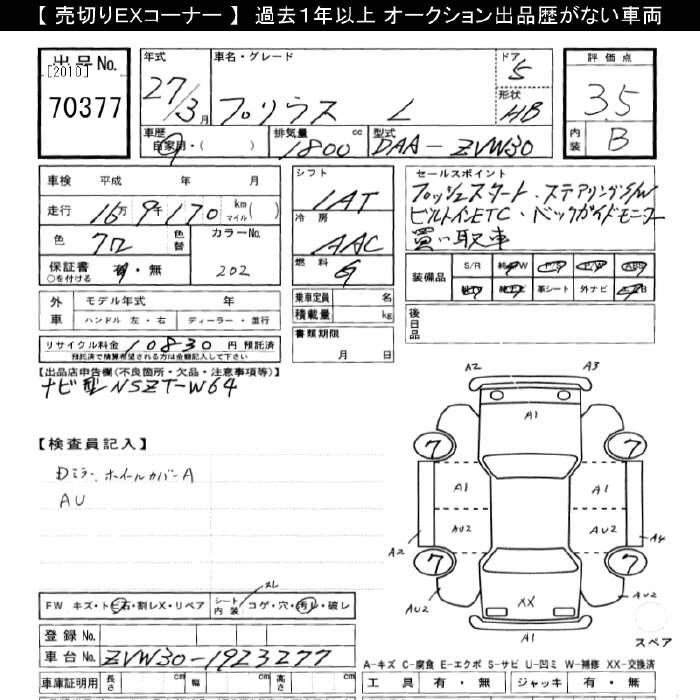 【 売切りEXコーナー 】 過去1年以上 オークション出品歴がない車両
出品No.
[2010]
70377
年式 27/3月
車名・グレード プリウス L
ドア 5
形状 HB
評価点 3.5
内装 B
車歴 自家用・( )
排気量 1800 cc
型式 DAA-ZVW30
車検 平成 年 月
走行 16万9千170 km マイル( )
色 クロ 色替
カラーNo. 202
保証書 有・無
○を付ける
シフト 1AT
冷房 AAC
燃料 G
乗車定員 名
積載量 kg
書類期限
月 日
セールスポイント
プッシュスタート・ステアリングS/W
ビルトインETC・バックガイドモニター
買い取車
装備品 S/R 純AW PS PW ABS
革シート 外ナビ
後日品
外車 モデル年式 年
ハンドル 左・右 ディーラー・並行
リサイクル料金 10830 円 預託済
預託済で精算希望される方は金額記入して下さい
【出品店申告欄(不良箇所・欠品・注意事項等)】
ナビ型 NSZT-W64
【検査員記入】
Dミラー ホイールカバーA
AU
A2 A3
A1
7 7
A1 A1
AU2 AU2
A2 A4
7 7
AU2 XX AU2
A1
スペア
FW キズ・トビ石・割レX・リペア
シート内装 コゲ・穴・汚レ・破レ
スレ
登録No.
車台No. ZVW30-1923277
車庫証明用 長さ cm 幅 cm 高さ cm
A-キズ C-腐食 E-エクボ S-サビ U-凹ミ W-補修 XX-交換済
工具 有・無 ジャッキ 有・無